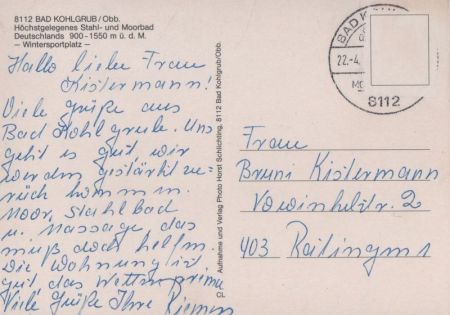 8112 BAD KOHLGRUB / Obb.
Höchstgelegenes Stahl- und Moorbad
Deutschlands 900-1550 m ü. d. M.
– Wintersportplatz –
Hallo liebe Frau
Kistermann!
Viele Grüße aus
Bad Kohlgrub. Uns
geht es gut wir
werden gestärkt zu-
rück kommen.
Moor, Stahlbad
u. Massage das
muß doch helfen.
Die Wohnung ist
gut das Wetter prima
Viele Grüße Ihre
Aufnahme und Verlag Photo Horst Schlichting, 8112 Bad Kohlgrub/Obb.
BAD
22.-4.
8112
Frau
Bruni Kistermann
2
403 Ratingen 1